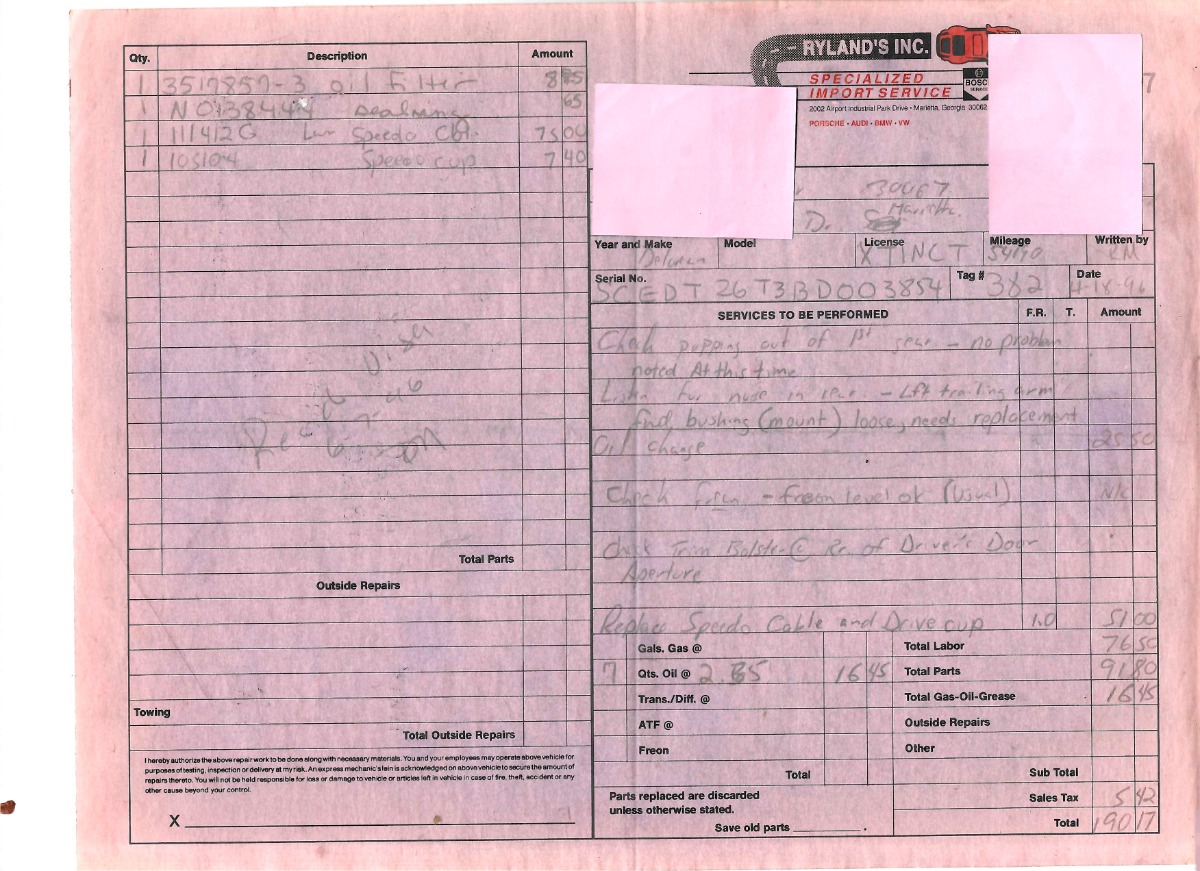 RYLAND'S INC.
SPECIALIZED
IMPORT SERVICE
BOSCH
SERVICE
2002 Airport Industrial Park Drive • Marietta, Georgia 30062
PORSCHE • AUDI • BMW • VW
7
Qty. Description Amount
1 3517857-3 oil Filter 8 85
1 NO138444 Sealring 65
1 111412G Lwr Speedo Cble 75 00
1 105104 Speedo cup 7 40
Total Parts
Outside Repairs
Towing
Total Outside Repairs
I hereby authorize the above repair work to be done along with necessary materials. You and your employees may operate above vehicle for
purposes of testing, inspection or delivery at my risk. An express mechanic's lien is acknowledged on above vehicle to secure the amount of
repairs thereto. You will not be held responsible for loss or damage to vehicle or articles left in vehicle in case of fire, theft, accident or any
other cause beyond your control.
X
30067
D. Marietta.
Year and Make Model License Mileage Written by
Delorean XTINCT 54170 RM
Serial No. Tag # Date
SCEDT26T3BD003854 382 4-18-96
SERVICES TO BE PERFORMED F.R. T. Amount
Check popping out of 1st gear - no problem
noted At this time
Listen for noise in rear - Lft trailing arm
find bushing (mount) loose, needs replacement
Oil change 25 50
Check freon - freon level ok (Visual) N/c
Check Trim Bolster @ Rr. of Driver's Door
Aperture
Replace Speedo Cable and Drive cup 1.0 51 00
Gals. Gas @
7 Qts. Oil @ 2.35 16 45
Trans./Diff. @
ATF @
Freon
Total
Parts replaced are discarded
unless otherwise stated.
Save old parts
Total Labor 76 50
Total Parts 91 80
Total Gas-Oil-Grease 16 45
Outside Repairs
Other
Sub Total
Sales Tax 5 42
Total 190 17